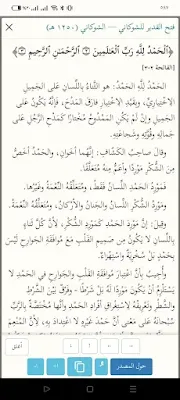 فتح القدير للشوكاني — الشوكاني (١٢٥٠ هـ)
﴿الْحَمْدُ لِلَّهِ رَبِّ الْعَالَمِينَ ۝ الرَّحْمَٰنِ الرَّحِيمِ ۝﴾
[الفاتحة ٢-٣]
الْحَمْدُ لِلَّهِ الْحَمْدُ: هو الثَّناءُ بِاللِّسانِ عَلى الجَمِيلِ
الِاخْتِيارِيِّ، وبِقَيْدِ الِاخْتِيارِ فارَقَ المَدْحَ، فَإنَّهُ يَكُونُ عَلى
الجَمِيلِ وإنْ لَمْ يَكُنِ المَمْدُوحُ مُخْتارًا كَمَدْحِ الرَّجُلِ عَلى
جَمالِهِ وقُوَّتِهِ وشَجاعَتِهِ.
وقالَ صاحِبُ الكَشّافِ: إنَّهُما أخَوانِ، والحَمْدُ أخَصُّ
مِنَ الشُّكْرِ مَوْرِدًا وأعَمُّ مِنهُ مُتَعَلِّقًا.
فَمَوْرِدُ الحَمْدِ اللِّسانُ فَقَطْ، ومُتَعَلِّقُهُ النِّعْمَةُ وغَيْرُها.
ومَوْرِدُ الشُّكْرِ اللِّسانُ والجَنانُ والأرْكانُ، ومُتَعَلِّقُهُ النِّعْمَةُ.
وقِيلَ: إنَّ مَوْرِدَ الحَمْدِ كَمَوْرِدِ الشُّكْرِ، لِأنَّ كُلَّ ثَناءٍ
بِاللِّسانِ لا يَكُونُ مِن صَمِيمِ القَلْبِ مَعَ مُوافَقَةِ الجَوارِحِ لَيْسَ
بِحَمْدٍ بَلْ سُخْرِيَةٌ واسْتِهْزاءٌ.
وأُجِيبَ بِأنَّ اعْتِبارَ مُوافَقَةِ القَلْبِ والجَوارِحِ في الحَمْدِ لا
يَسْتَلْزِمُ أنْ يَكُونَ مَوْرِدًا لَهُ بَلْ شَرْطًا - وفَرْقٌ بَيْنَ الشَّرْطِ
والشَّطْرِ وتَعْرِيفُهُ لِاسْتِغْراقِ أفْرادِ الحَمْدِ وأنَّها مُخْتَصَّةٌ بِالرَّبِّ
سُبْحانَهُ عَلى مَعْنى أنَّ حَمْدَ غَيْرِهِ لا اعْتِدادَ بِهِ، لِأنَّ المُنْعِمَ
أغلق
حول المصدر